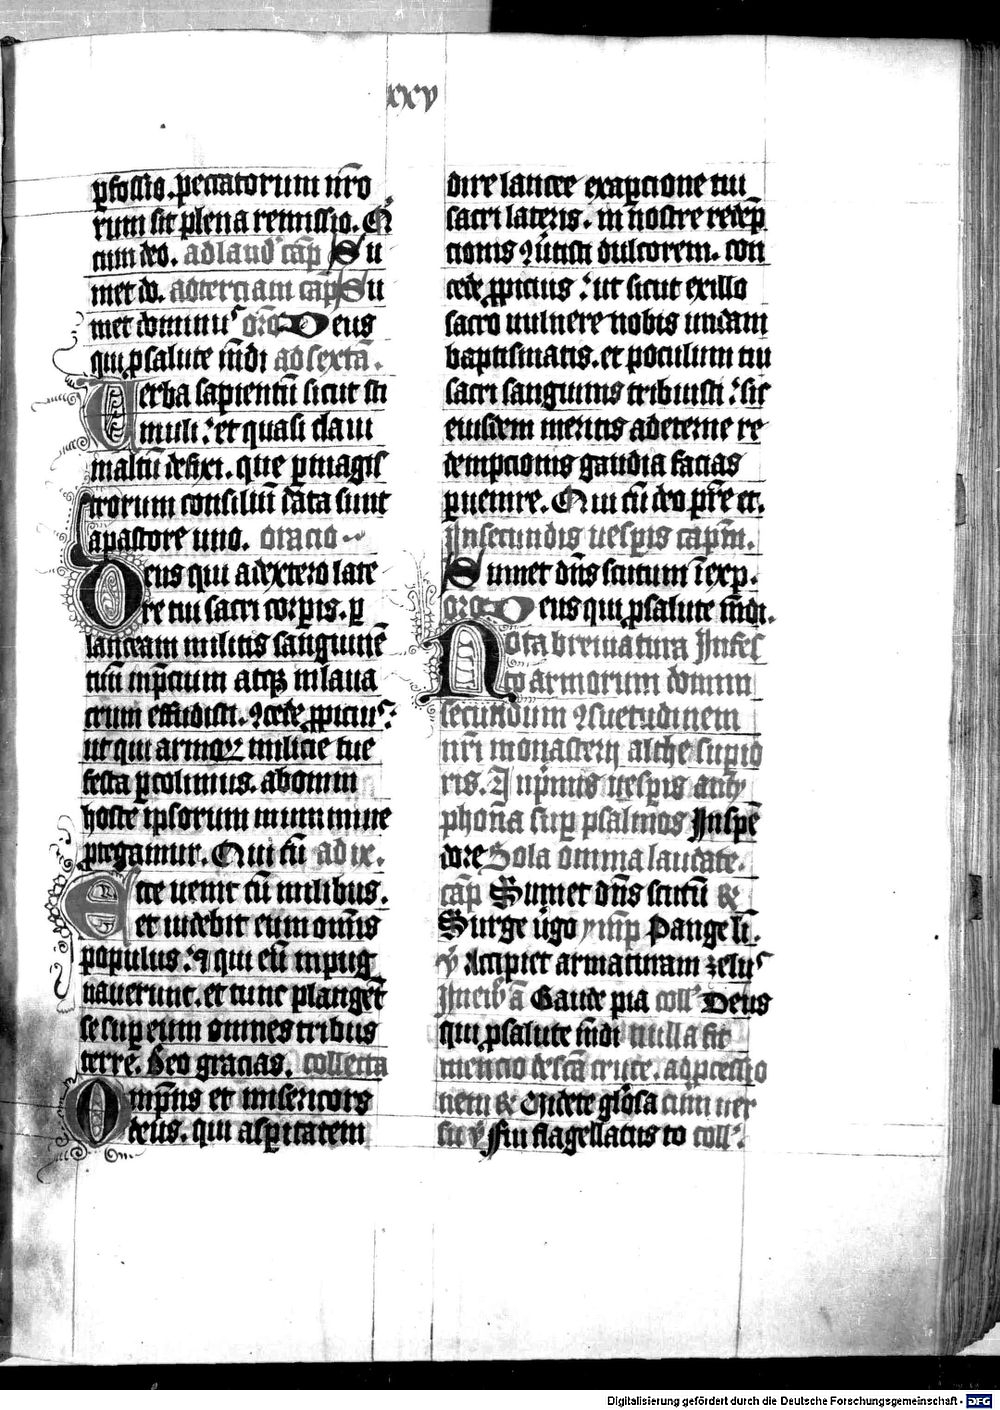 xxv
p̱fossio. peccatorum nr̄o
rum sit plena remissio. Q̄
cum deo. ad laud' cap̄ Su
met do. ad terciam cap̄ Su
met dominus or̄o Deus
qui p̱ salute m̄di ad sextā.
Verba sapientiū sicut sti
muli: et quasi claui
in altū defixi. que p̱ magis
trorum consiliū data sunt
a pastore uno. oracio
Deus qui a dextero late
re tui sacri corp̱is. p̱
lanceam militis sanguinē
tuū in p̄cium atq; in laua
crum effudisti. ꝯcede ꝓpicius:
ut qui armoꝝ milicie tue
festa p̱colimus. ab omni
hoste ipsorum munimine
ꝓtegamur. Qui cū ad ix.
Ecce uenit cū milibus.
et uidebit eum om̄is
populus: ꝯ qui eū inpug
nauerunt. et tunc plangēt
se sup̱ eum omnes tribus
terre. Deo gracias. collecta
Omp̄ns et misericors
deus. qui asp̱itatem
dire lancee exap̱cione tui
sacri lateris. in nostre redēp
cionis ꝯu̇tisti dulcorem. con
cede ꝓpicius: ut sicut ex illo
sacro uulnere nobis undam
baptismatis. et poculum tui
sacri sanguinis tribuisti: sic
eiusdem meritis ad eterne re
dempcionis gaudia facias
p̱uenire. Qui cū deo pr̄e et.
In secundis uesp̱is capm̄.
Sumet dn̄s scutum īexp.
or̄o Deus qui p̱ salute m̄di.
Nota breuiatura In fes
to armorum domini
secundum ꝯsuetudinem
nr̄i monasterij althe sup̱io
ris. In p̱mis uesp̱is anty
phona sup̱ psalmos In spē
dore Sola omnia laudate.
cap̄ Sumet dn̄s scutū &
Surge u̇go ymp̄ Pange li.
v̄ Accipiet armaturam zelus
In ew̄ ā Gaude pia coll' Deus
qui p̱ salute m̄di nulla fit
mencio de scā cruce. ad ꝓcessio
nem & Videte glōsa cum uer
su v̄ Fui flagellatus to coll'.
Digitalisierung gefördert durch die Deutsche Forschungsgemeinschaft - DFG